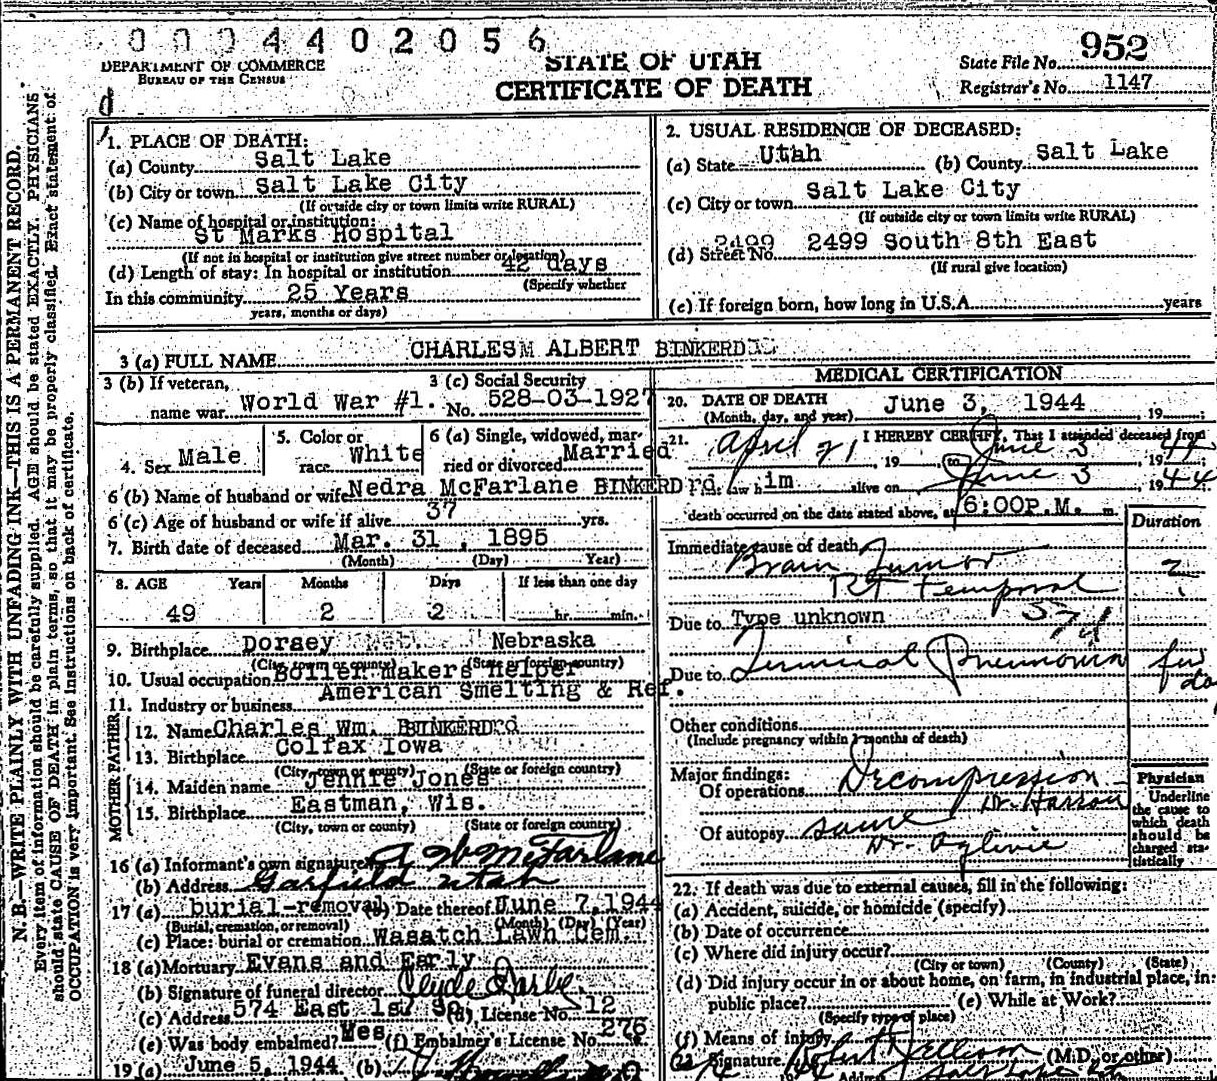 0 0 0 4 4 0 2 0 5 6
DEPARTMENT OF COMMERCE
BUREAU OF THE CENSUS
STATE OF UTAH
CERTIFICATE OF DEATH
State File No. 952
Registrar's No. 1147
N. B.—WRITE PLAINLY WITH UNFADING INK—THIS IS A PERMANENT RECORD.
Every item of information should be carefully supplied. AGE should be stated EXACTLY. PHYSICIANS
should state CAUSE OF DEATH in plain terms, so that it may be properly classified. Exact statement of
OCCUPATION is very important. See instructions on back of certificate.
1. PLACE OF DEATH:
(a) County Salt Lake
(b) City or town Salt Lake City
(If outside city or town limits write RURAL)
(c) Name of hospital or institution:
St Marks Hospital
(If not in hospital or institution give street number or location)
(d) Length of stay: In hospital or institution 42 days
(Specify whether
In this community 25 Years
years, months or days)
2. USUAL RESIDENCE OF DECEASED:
(a) State Utah (b) County Salt Lake
(c) City or town Salt Lake City
(If outside city or town limits write RURAL)
(d) Street No. 2499 2499 South 8th East
(If rural give location)
(e) If foreign born, how long in U.S.A. years
3 (a) FULL NAME CHARLES ALBERT BINKERD
3 (b) If veteran, name war World War #1.
3 (c) Social Security No. 528-03-1927
4. Sex Male
5. Color or race White
6 (a) Single, widowed, married or divorced Married
6 (b) Name of husband or wife Nedra McFarlane BINKERD
6 (c) Age of husband or wife if alive 37 yrs.
7. Birth date of deceased Mar. 31, 1895
(Month) (Day) Year)
8. AGE Years Months Days If less than one day
49 2 2 hr. min.
9. Birthplace Dorsey Nebraska
(City, town or county) (State or foreign country)
10. Usual occupation Boiler makers Helper
11. Industry or business American Smelting & Ref.
FATHER
12. Name Charles Wm. BINKERD
13. Birthplace Colfax Iowa
(City, town or county) (State or foreign country)
MOTHER
14. Maiden name Jennie Jones
15. Birthplace Eastman, Wis.
(City, town or county) (State or foreign country)
16 (a) Informant's own signature A W McFarlane
(b) Address Garfield Utah
17 (a) burial-removal (b) Date thereof June 7, 1944
(Burial, cremation, or removal) (Month) (Day) (Year)
(c) Place: burial or cremation Wasatch Lawn Cem.
18 (a) Mortuary Evans and Early
(b) Signature of funeral director Clyde Early
(c) Address 574 East 1st So. (d) License No. 12
(e) Was body embalmed? Yes (f) Embalmer's License No. 276
19 (a) June 5, 1944 (b)
MEDICAL CERTIFICATION
20. DATE OF DEATH June 3, 1944, 19
(Month, day, and year)
21. I HEREBY CERTIFY, That I attended deceased from
April 21, 19 to June 3 1944
I last saw him alive on June 3 1944
death occurred on the date stated above, at 6:00P.M. m.
Duration
Immediate cause of death
Brain Tumor ?
Rt temporal
Due to Type unknown 57d
Due to Terminal Pneumonia few da
Other conditions
(Include pregnancy within 3 months of death)
Major findings:
Of operations Decompression
Dr. Harrow
Of autopsy same
Dr. Oglivie
Physician
Underline
the cause to
which death
should be
charged sta-
tistically
22. If death was due to external causes, fill in the following:
(a) Accident, suicide, or homicide (specify)
(b) Date of occurrence
(c) Where did injury occur?
(City or town) (County) (State)
(d) Did injury occur in or about home, on farm, in industrial place, in
public place? (e) While at Work?
(Specify type of place)
(f) Means of injury
23. Signature (M.D. or other)
Address